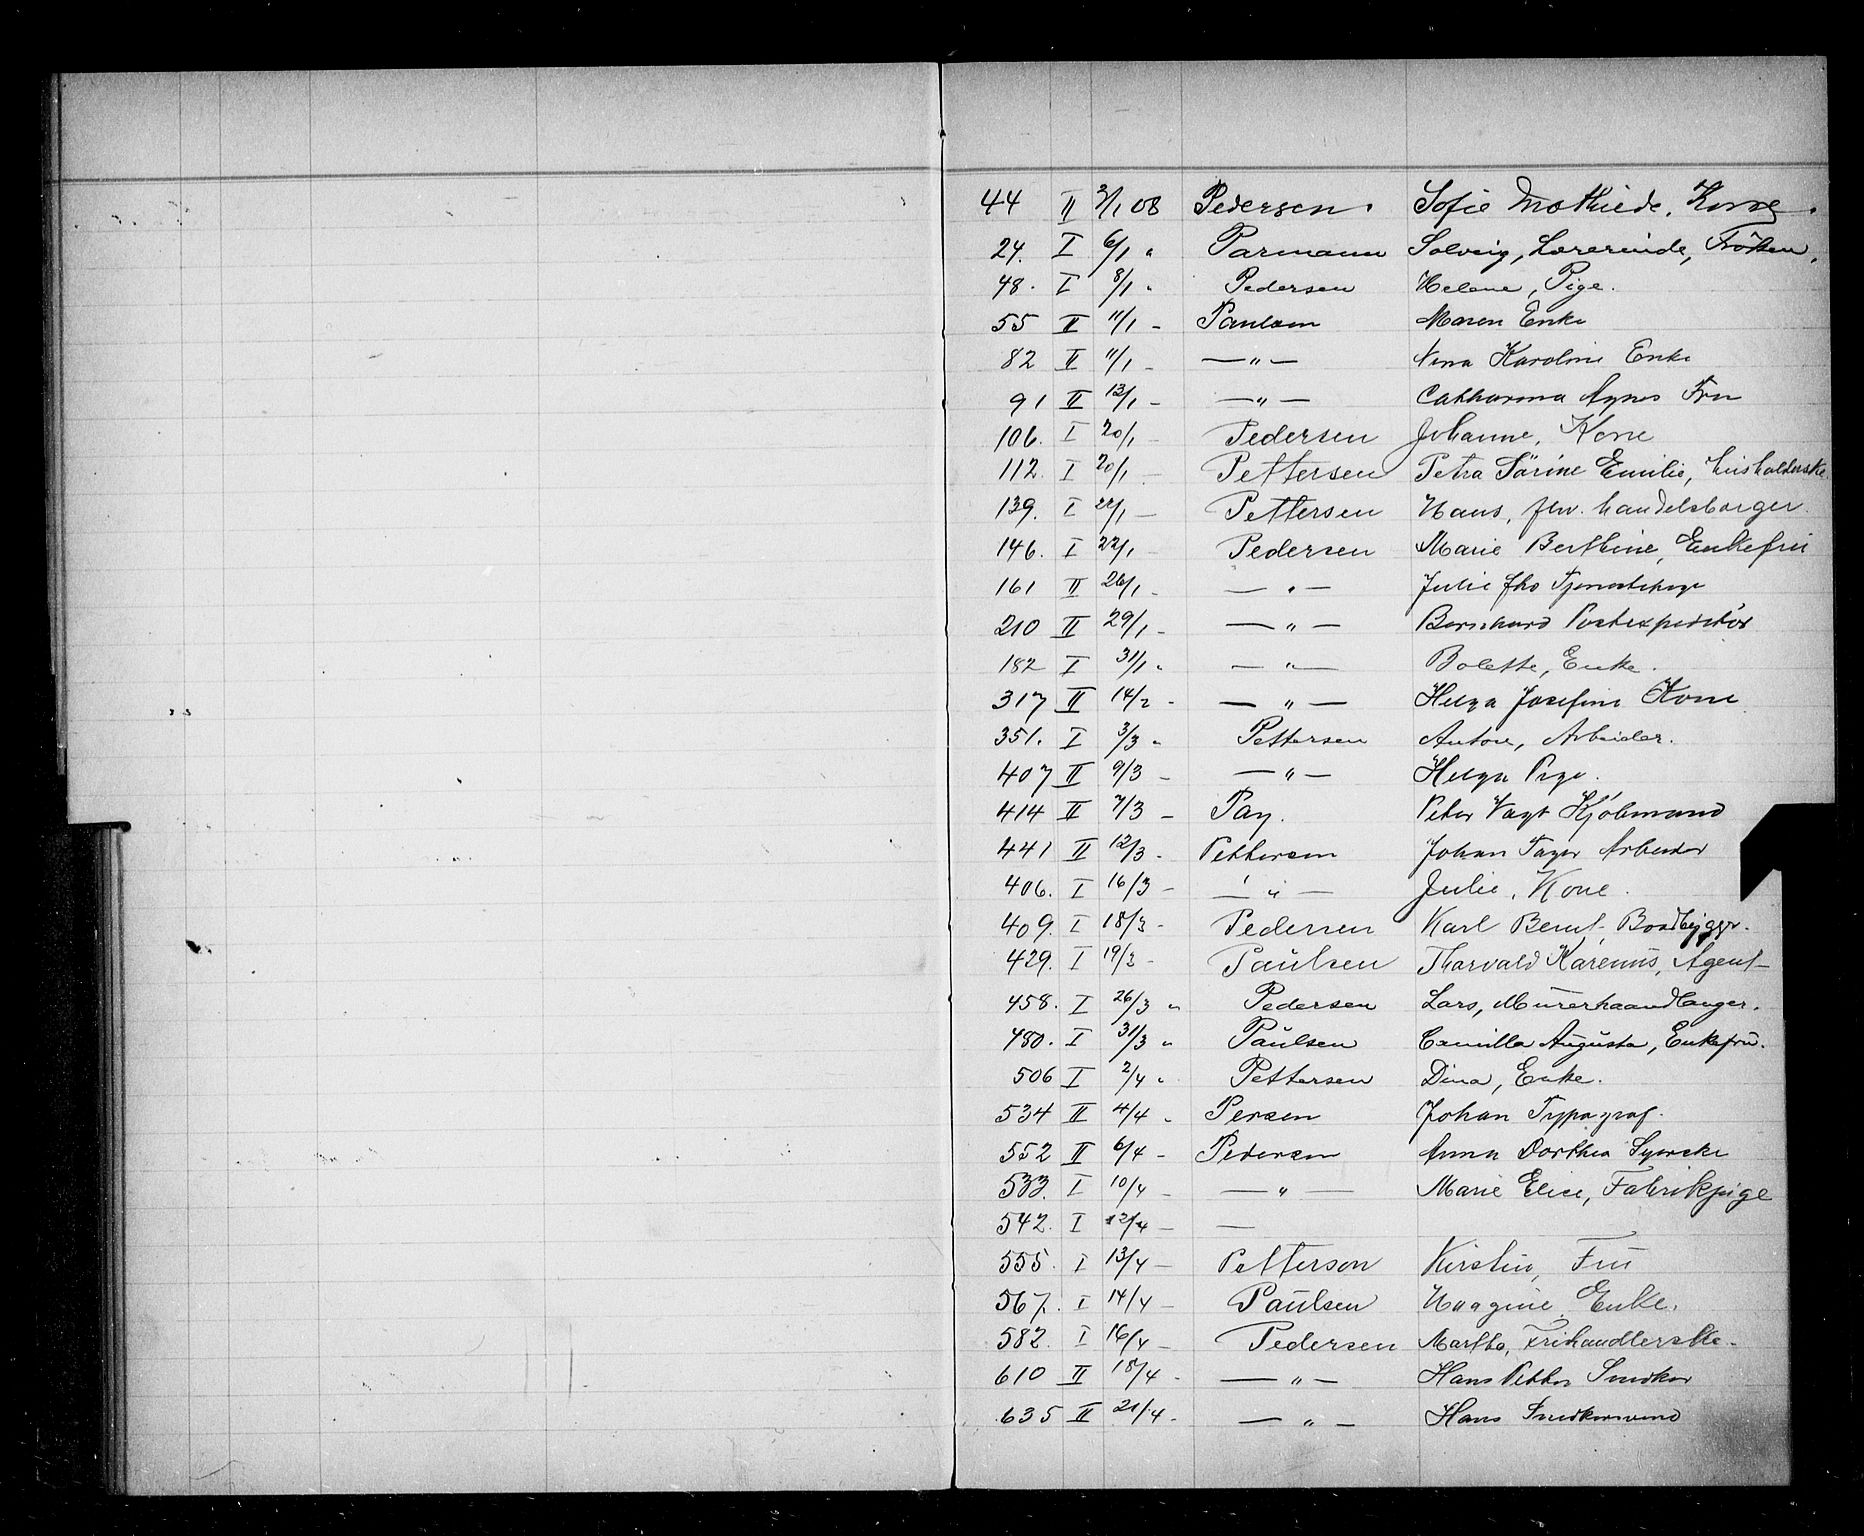 44 II 3/1 08 Pedersen. Sofie Mathilde, Kone.
24. I 6/1 " Parmann Solveig, Lærerinde, Frøken.
48. I 8/1 " Pedersen Helene, Pige.
55 II 11/1 - Paulsen Maren Enke
82 II 11/1 - —"— Nina Karoline Enke
91 II 13/1 - —"— Catharina Agnes Fru
106. I 20/1 - Pedersen Johanne, Kone
112. I 20/1 - Pettersen Petra Sörine Emilie, husholderske
139. I 22/1 - Pettersen Hans, fhv. handelsborger.
146. I 22/1 - Pedersen Marie Berthine, Enkefru
161 II 26/1 - —"— Julie fhv Tjenestepige
210 II 29/1 - —"— Bernhard Postexpeditör
182 I 31/1 " —"— Bolette, Enke.
317 II 14/2 - —"— Helga Josefine Kone
351. I 3/3 " Pettersen Anton, Arbeider.
407 II 9/3 - —"— Helga Pige.
414 II 7/3 - Pay. Peter Vagt Kjöbmand
441 II 12/3 - Pettersen Johan Arbeider
406. I 16/3 - —"— Julie, Kone.
409. I 18/3 - Pedersen Karl Bernt, Baadbygger.
429. I 19/3 - Paulsen Tharvald Karenius, Agent
458. I 26/3 " Pedersen Lars, Murerhaandlanger.
480. I 31/3 " Paulsen Camilla Augusta, Enkefru.
506 I 2/4 " Pettersen Dina, Enke.
534 II 4/4 " Persen Johan Typograf.
552 II 6/4 - Pedersen Anna Dorthea Syerske
533. I 10/4 - —"— Marie Elise, Fabrikpige
542. I 12/4 - —
555. I 13/4 - Petterson Kirstin, Fru
567. I 14/4 - Paulsen Haagine Enke.
582. I 16/4 - Pedersen Martha, Frihandlerske.
610 II 18/4 - —"— Hans Petter Snedker
635 II 21/4 - —"— Hans Snedkersvend